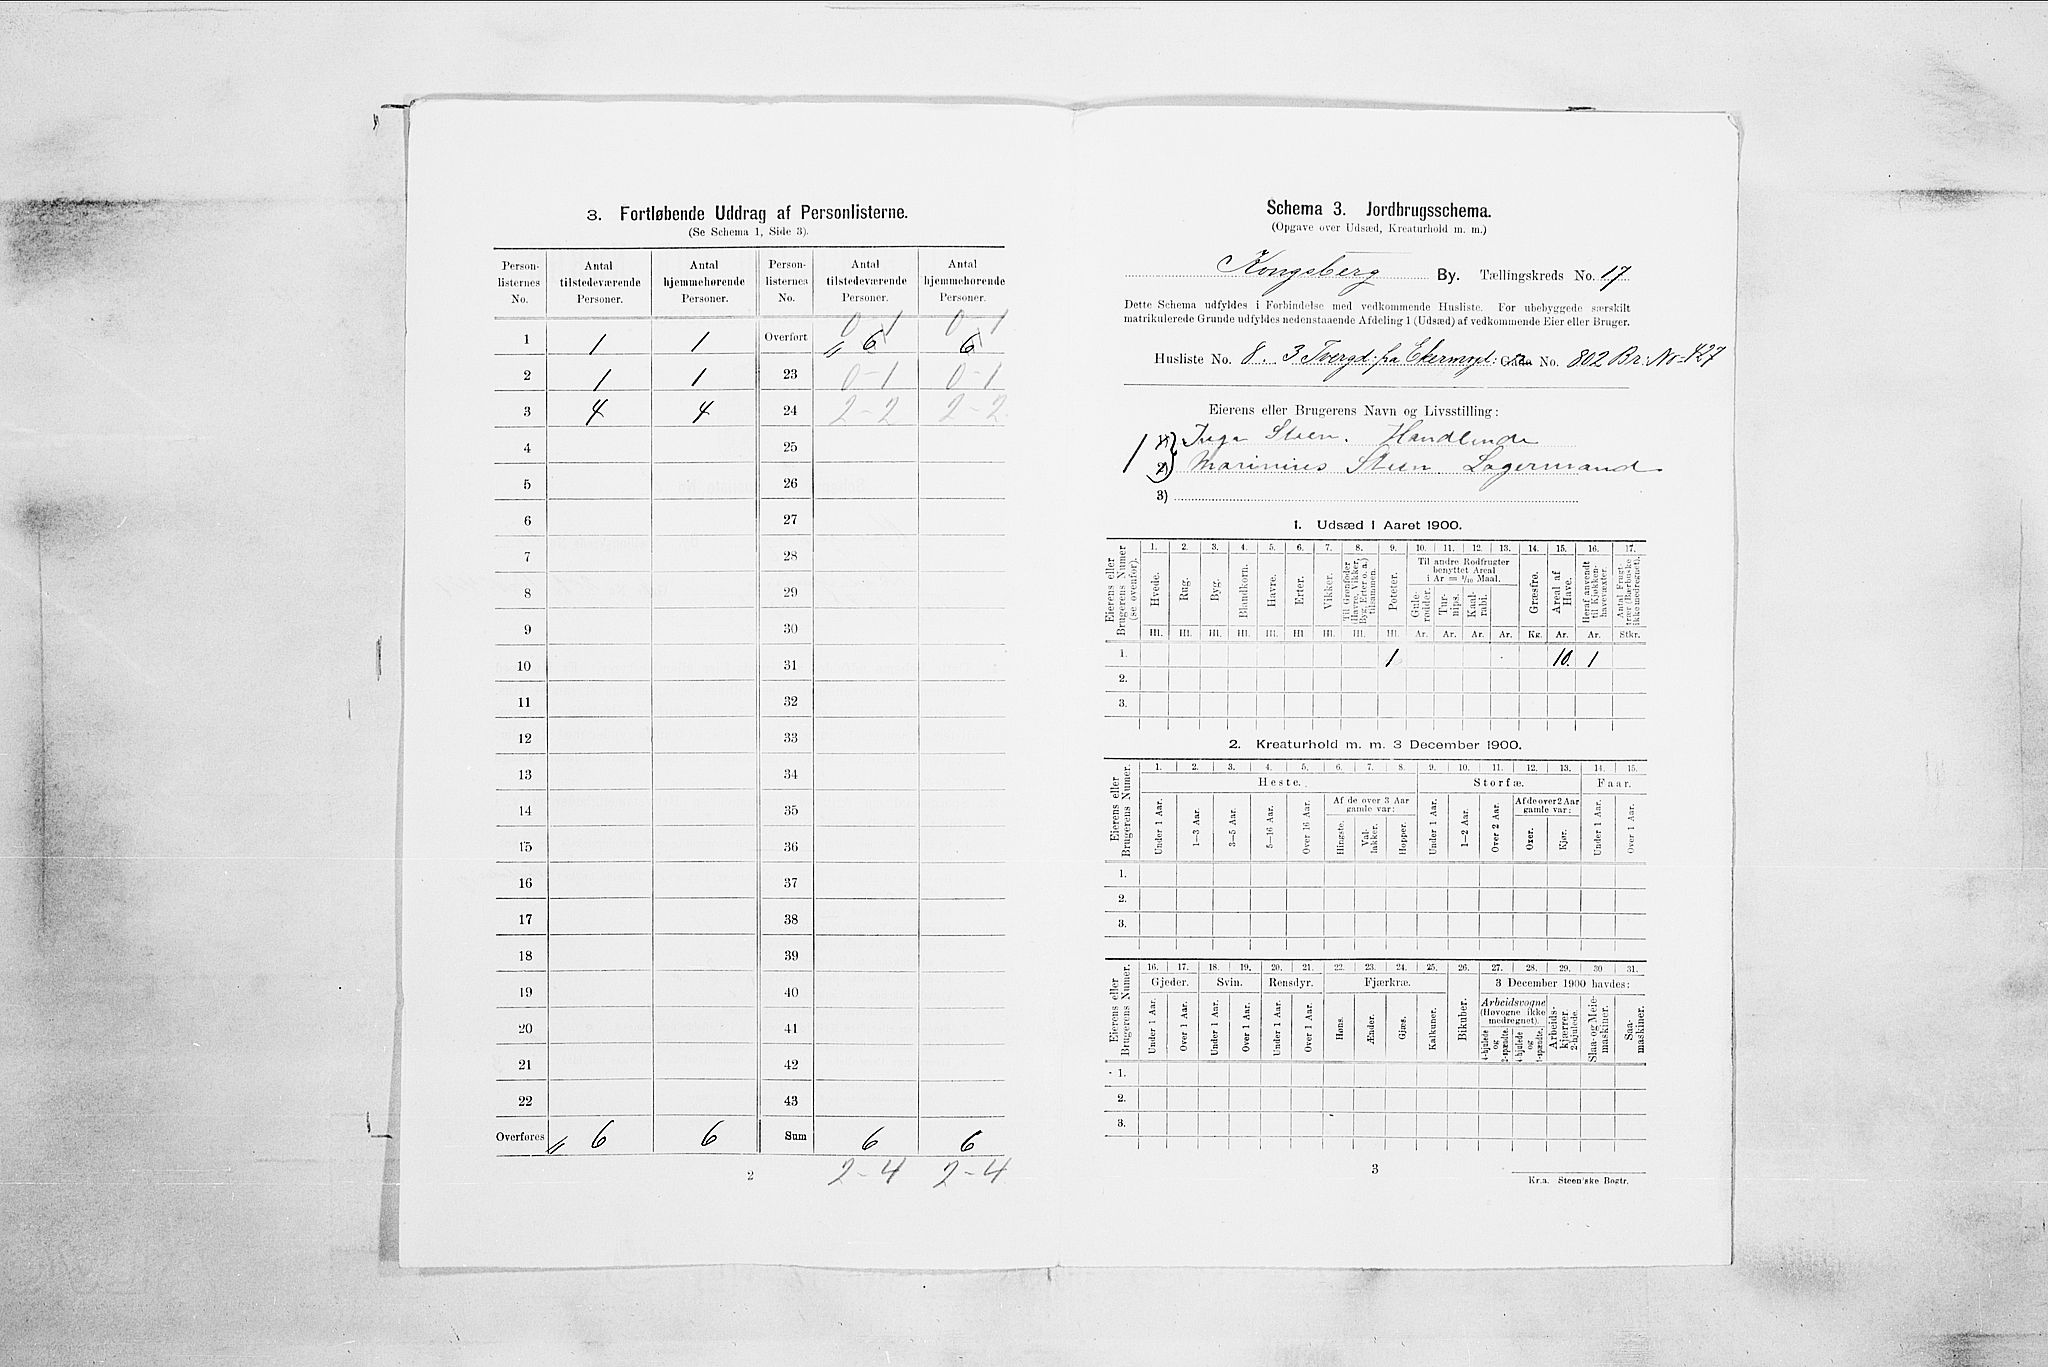 3. Fortløbende Uddrag af Personlisterne.
(Se Schema 1, Side 3).
Person-listernes No. | Antal tilstedeværende Personer. | Antal hjemmehørende Personer. | Person-listernes No. | Antal tilstedeværende Personer. | Antal hjemmehørende Personer.
0-1 0-1
1 1 1 Overført „ 6 6
2 1 1 23 0-1 0-1
3 4 4 24 2-2 2-2
4 25
5 26
6 27
7 28
8 29
9 30
10 31
11 32
12 33
13 34
14 35
15 36
16 37
17 38
18 39
19 40
20 41
21 42
22 43
Overføres „ 6 6 Sum 6 6
2-4 2-4
2
Schema 3. Jordbrugsschema.
(Opgave over Udsæd, Kreaturhold m. m.)
Kongsberg By. Tællingskreds No. 17
Dette Schema udfyldes i Forbindelse med vedkommende Husliste. For ubebyggede særskilt
matrikulerede Grunde udfyldes nedenstaaende Afdeling 1 (Udsæd) af vedkommende Eier eller Bruger.
Husliste No. 8. 3 Tvergd: fra Ekermyd: Gade No. 802 Br: No 427
Eierens eller Brugerens Navn og Livsstilling:
1 1) Inga Steen. Handlende
2) Marinius Steen Lagermand
3)
1. Udsæd i Aaret 1900.
Eierens eller Brugerens Numer (se ovenfor).
1. 2. 3. 4. 5. 6. 7. 8. 9. 10. 11. 12. 13. 14. 15. 16. 17.
Til andre Rodfrugter benyttet Areal i Ar = 1/10 Maal.
Hvede. Rug. Byg. Blandkorn. Havre. Erter. Vikker. Til Grønfoder (Havre, Vikker, Byg, Erter o. a.) tilsammen. Poteter. Gule-rødder. Tur-nips. Kaal-rabi. Græsfrø. Areal af Have. Heraf anvendt til Kjøkken-havevæxter. Antal Frugt-træer (Bærbuske ikke medregnet).
Hl. Hl. Hl. Hl. Hl. Hl. Hl. Hl. Hl. Ar. Ar. Ar. Ar. Kg. Ar. Ar. Stkr.
1. 1 10. 1
2.
3.
2. Kreaturhold m. m. 3 December 1900.
Eierens eller Brugerens Numer.
1. 2. 3. 4. 5. 6. 7. 8. 9. 10. 11. 12. 13. 14. 15.
Heste. Storfæ. Faar.
Af de over 3 Aar gamle var: Af de over 2 Aar gamle var:
Under 1 Aar. 1—3 Aar. 3—5 Aar. 5—16 Aar. Over 16 Aar. Hingste. Val-lakker. Hopper. Under 1 Aar. 1—2 Aar. Over 2 Aar. Oxer. Kjør. Under 1 Aar. Over 1 Aar.
1.
2.
3.
Eierens eller Brugerens Numer.
16. 17. 18. 19. 20. 21. 22. 23. 24. 25. 26. 27. 28. 29. 30 31.
Gjeder. Svin. Rensdyr. Fjærkræ. Bikuber. 3 December 1900 havdes:
Arbeidsvogne (Høvogne ikke medregnet).
Under 1 Aar. Over 1 Aar. Under 1 Aar. Over 1 Aar. Under 1 Aar. Over 1 Aar. Høns. Ænder. Gjæs. Kalkuner. 4-hjulede og 2-spændte. 4-hjulede og 1-spændte. Arbeids-kjærrer 2-hjulede. Slaa- og Meie-maskiner. Saa-maskiner.
1.
2.
3.
3
Kr.a. Steen'ske Bogtr.